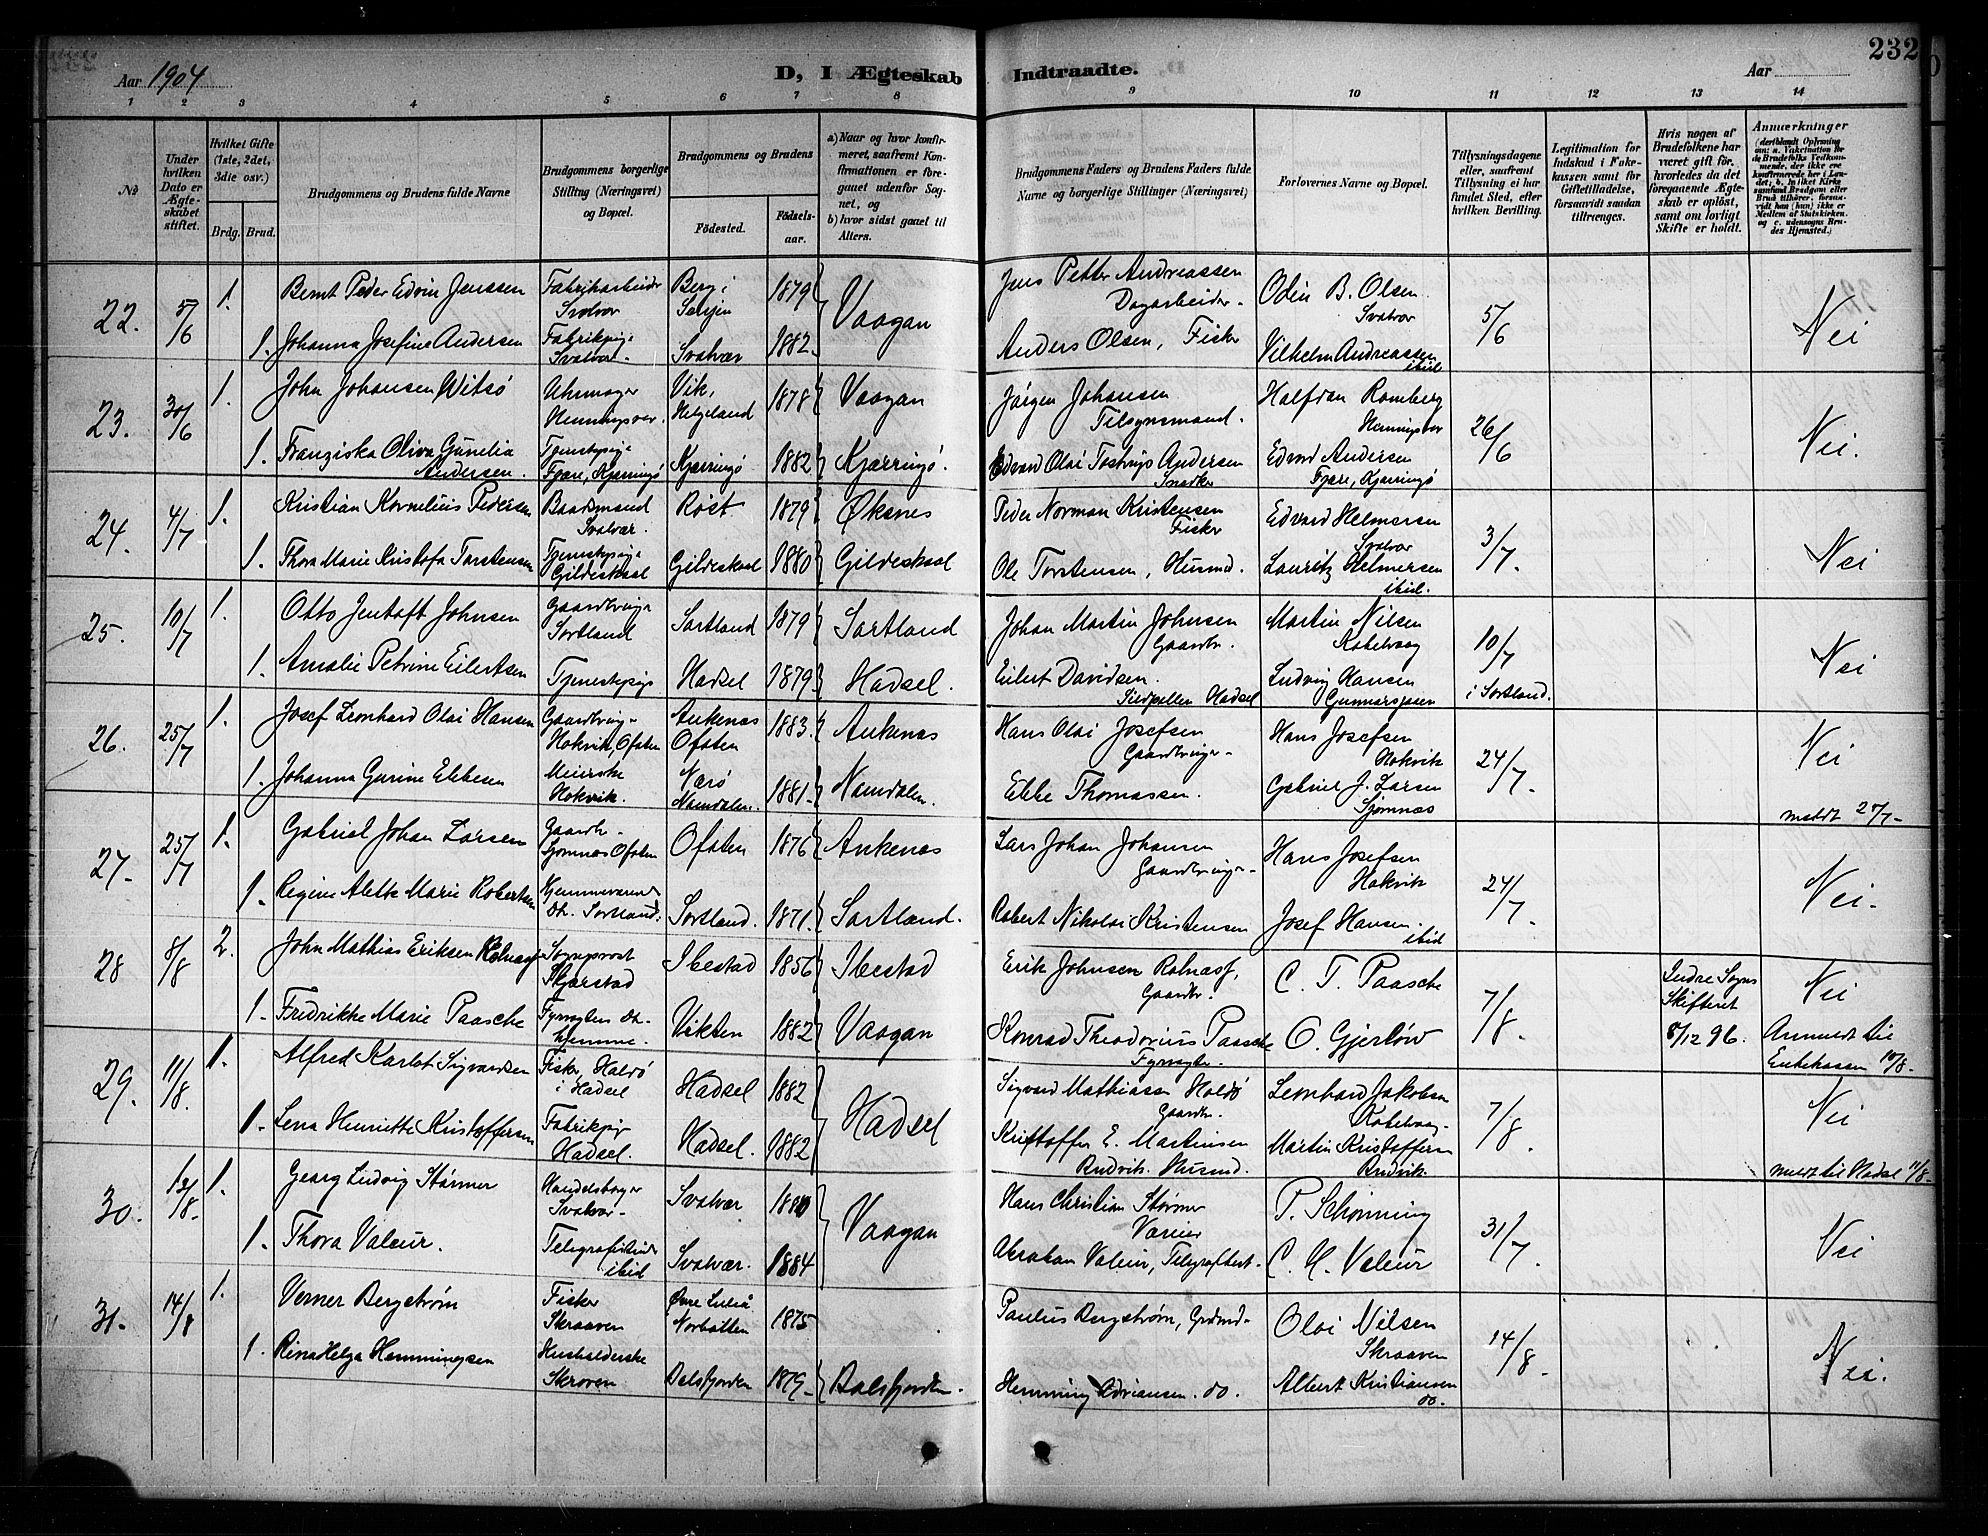 232
Aar 1904
D, I Ægteskab Indtraadte.
Aar
1 2 3 4 5 6 7 8 9 10 11 12 13 14
No
Under hvilken Dato er Ægteskabet stiftet.
Hvilket Gifte (1ste, 2det, 3die osv.)
Brdg. Brud.
Brudgommens og Brudens fulde Navne
Brudgommens borgerlige Stilling (Næringsvei) og Bopæl.
Brudgommens og Brudens
Fødested.
Fødselsaar.
a) Naar og hvor konfirmeret, saafremt Konfirmationen er foregaaet udenfor Sognet, og
b) hvor sidst gaaet til Alters.
Brudgommens Faders og Brudens Faders fulde Navne og borgerlige Stillinger (Næringsvei)
Forlovernes Navne og Bopæl.
Tillysningsdagene eller, saafremt Tillysning ei har fundet Sted, efter hvilken Bevilling.
Legitimation for Indskud i Fakekassen samt for Giftetilladelse, forsaavidt saadan tiltrænges.
Hvis nogen af Brudefolkene har været gift før, hvorledes da det foregaaende Ægteskab er opløst, samt om lovligt Skifte er holdt.
Anmærkninger
22. 5/6 1. Bernt Peder Edvin Jenssen Fabrikarbeider Svolvær Berg i Senjen 1879 Vaagan Jens Petter Andreassen Dagarbeider Odin B. Olsen Svolvær 5/6 Nei
1. Johanna Josefine Andersen Fabrikpige Svolvær Svolvær 1882 Anders Olsen, Fisker Vilhelm Andreassen ibid
23. 30/6 1. John Johansen Witsø Uhrmager Henningsvær Vik, Helgeland 1878 Vaagan Jørgen Johansen Tilsynsmand Halfdan Romberg Henningsvær 26/6 Nei.
1. Franziska Oliva Gunelia Andersen Tjenestepige Fjære, Kjerringø Kjerringø 1882 Kjerringø. Edvard Olai Tostrup Andersen Snedker Edvard Andersen Fjære, Kjerringø
24. 4/7 1. Kristian Kornelius Pedersen Baadsmand Svolvær Røst 1879 Øksnes Peder Norman Kristensen Fisker Edvard Helmersen Svolvær 3/7. Nei
1. Thora Marie Kristofa Torstensen Tjenestepige Gildeskaal Gildeskaal 1880 Gildeskaal Ole Torstensen, Husmd. Lauritz Helmersen ibid.
25. 10/7 1. Otto Jentoft Johnsen Gaardbruger Sortland Sortland 1879 Sortland Johan Martin Johnsen Gaardbr. Martin Nilsen Kabelvaag 10/7 i Sortland. Nei
1. Amalie Petrine Eilertsen Tjenestepige Hadsel 1879 Hadsel. Eilert Davidsen. Hadsel Ludvig Hansen
26. 25/7 1. Josef Leonhard Olai Hansen Gaardbruger Hokvik, Ofoten Ankenes Ofoten 1883. Ankenes Hans Olai Josefsen Gaardbruger Hans Josefsen Hokvik 24/7. Nei
1. Johanna Gurine Ebbesen Meierske Hokvik. Nærø Namdalen. 1881. Namdalen. Ebbe Thomassen. Gabriel J. Larsen Sjomnæs meldt 27/7.
27. 25/7 1. Gabriel Johan Larsen Gaardbr. Sjomnæs Ofoten Ofoten 1876 Ankenes Lars Johan Johansen Gaardbruger Hans Josefsen Hokvik 24/7. Nei.
1. Regine Aletke Marie Robertsen Hjemmeværende Dt. Sortland. Sortland. 1871. Sortland. Robert Nikolai Kristensen Josef Hansen. ibid
28 8/8 2. John Mathias Eriksen Sogneprest Skjerstad Ibestad 1856 Ibestad Erik Johnsen Gaardbr. C. T. Paasche 7/8. Indre Sogns Skifteret 8/12 96. Nei
1. Fredrikke Marie Paasche Fyrvogtens Dt. hjemme. Vikten 1882 Vaagan Konrad Theodorius Paasche Fyrvogter O. Gjerløw Anmeldt til Enkekassen 10/8.
29. 11/8. 1. Alfred Karlot Sigvardsen Fisker, Haldø i Hadsel Hadsel 1882 Hadsel Sigvard Mathiassen Haldø Gaardbr. Leonhard Jakobsen Kabelvaag 7/8. Nei
1. Lena Henriette Kristoffersen Fabrikpige Hadsel. Hadsel. 1882 Kristoffer E. Martinsen Husmd. Martin Kristoffersen meldt til Hadsel 11/8.
30. 12/8. 1. Georg Ludvig Størmer Handelsborger Svolvær Svolvær 1880 Vaagan Hans Christian Størmer P. Schønning 31/7. Nei
1. Thora Valeur. Telegrafistinde ibid Svolvær. 1884 Abraham Valeur, Telegrafbest. C. H. Valeur
31. 14/8 1. Verner Bergstrøm Fisker Skraaven Øvre Luleå Norbotten 1875 Paulus Bergstrøm, Olai Nilsen Skraaven 14/8. Nei.
1. Rina Helga Hemmingsen Husholderske Skroven Balsfjorden 1879. Balsfjorden. Hemming Adriansen. do. Albert Kristiansen do.